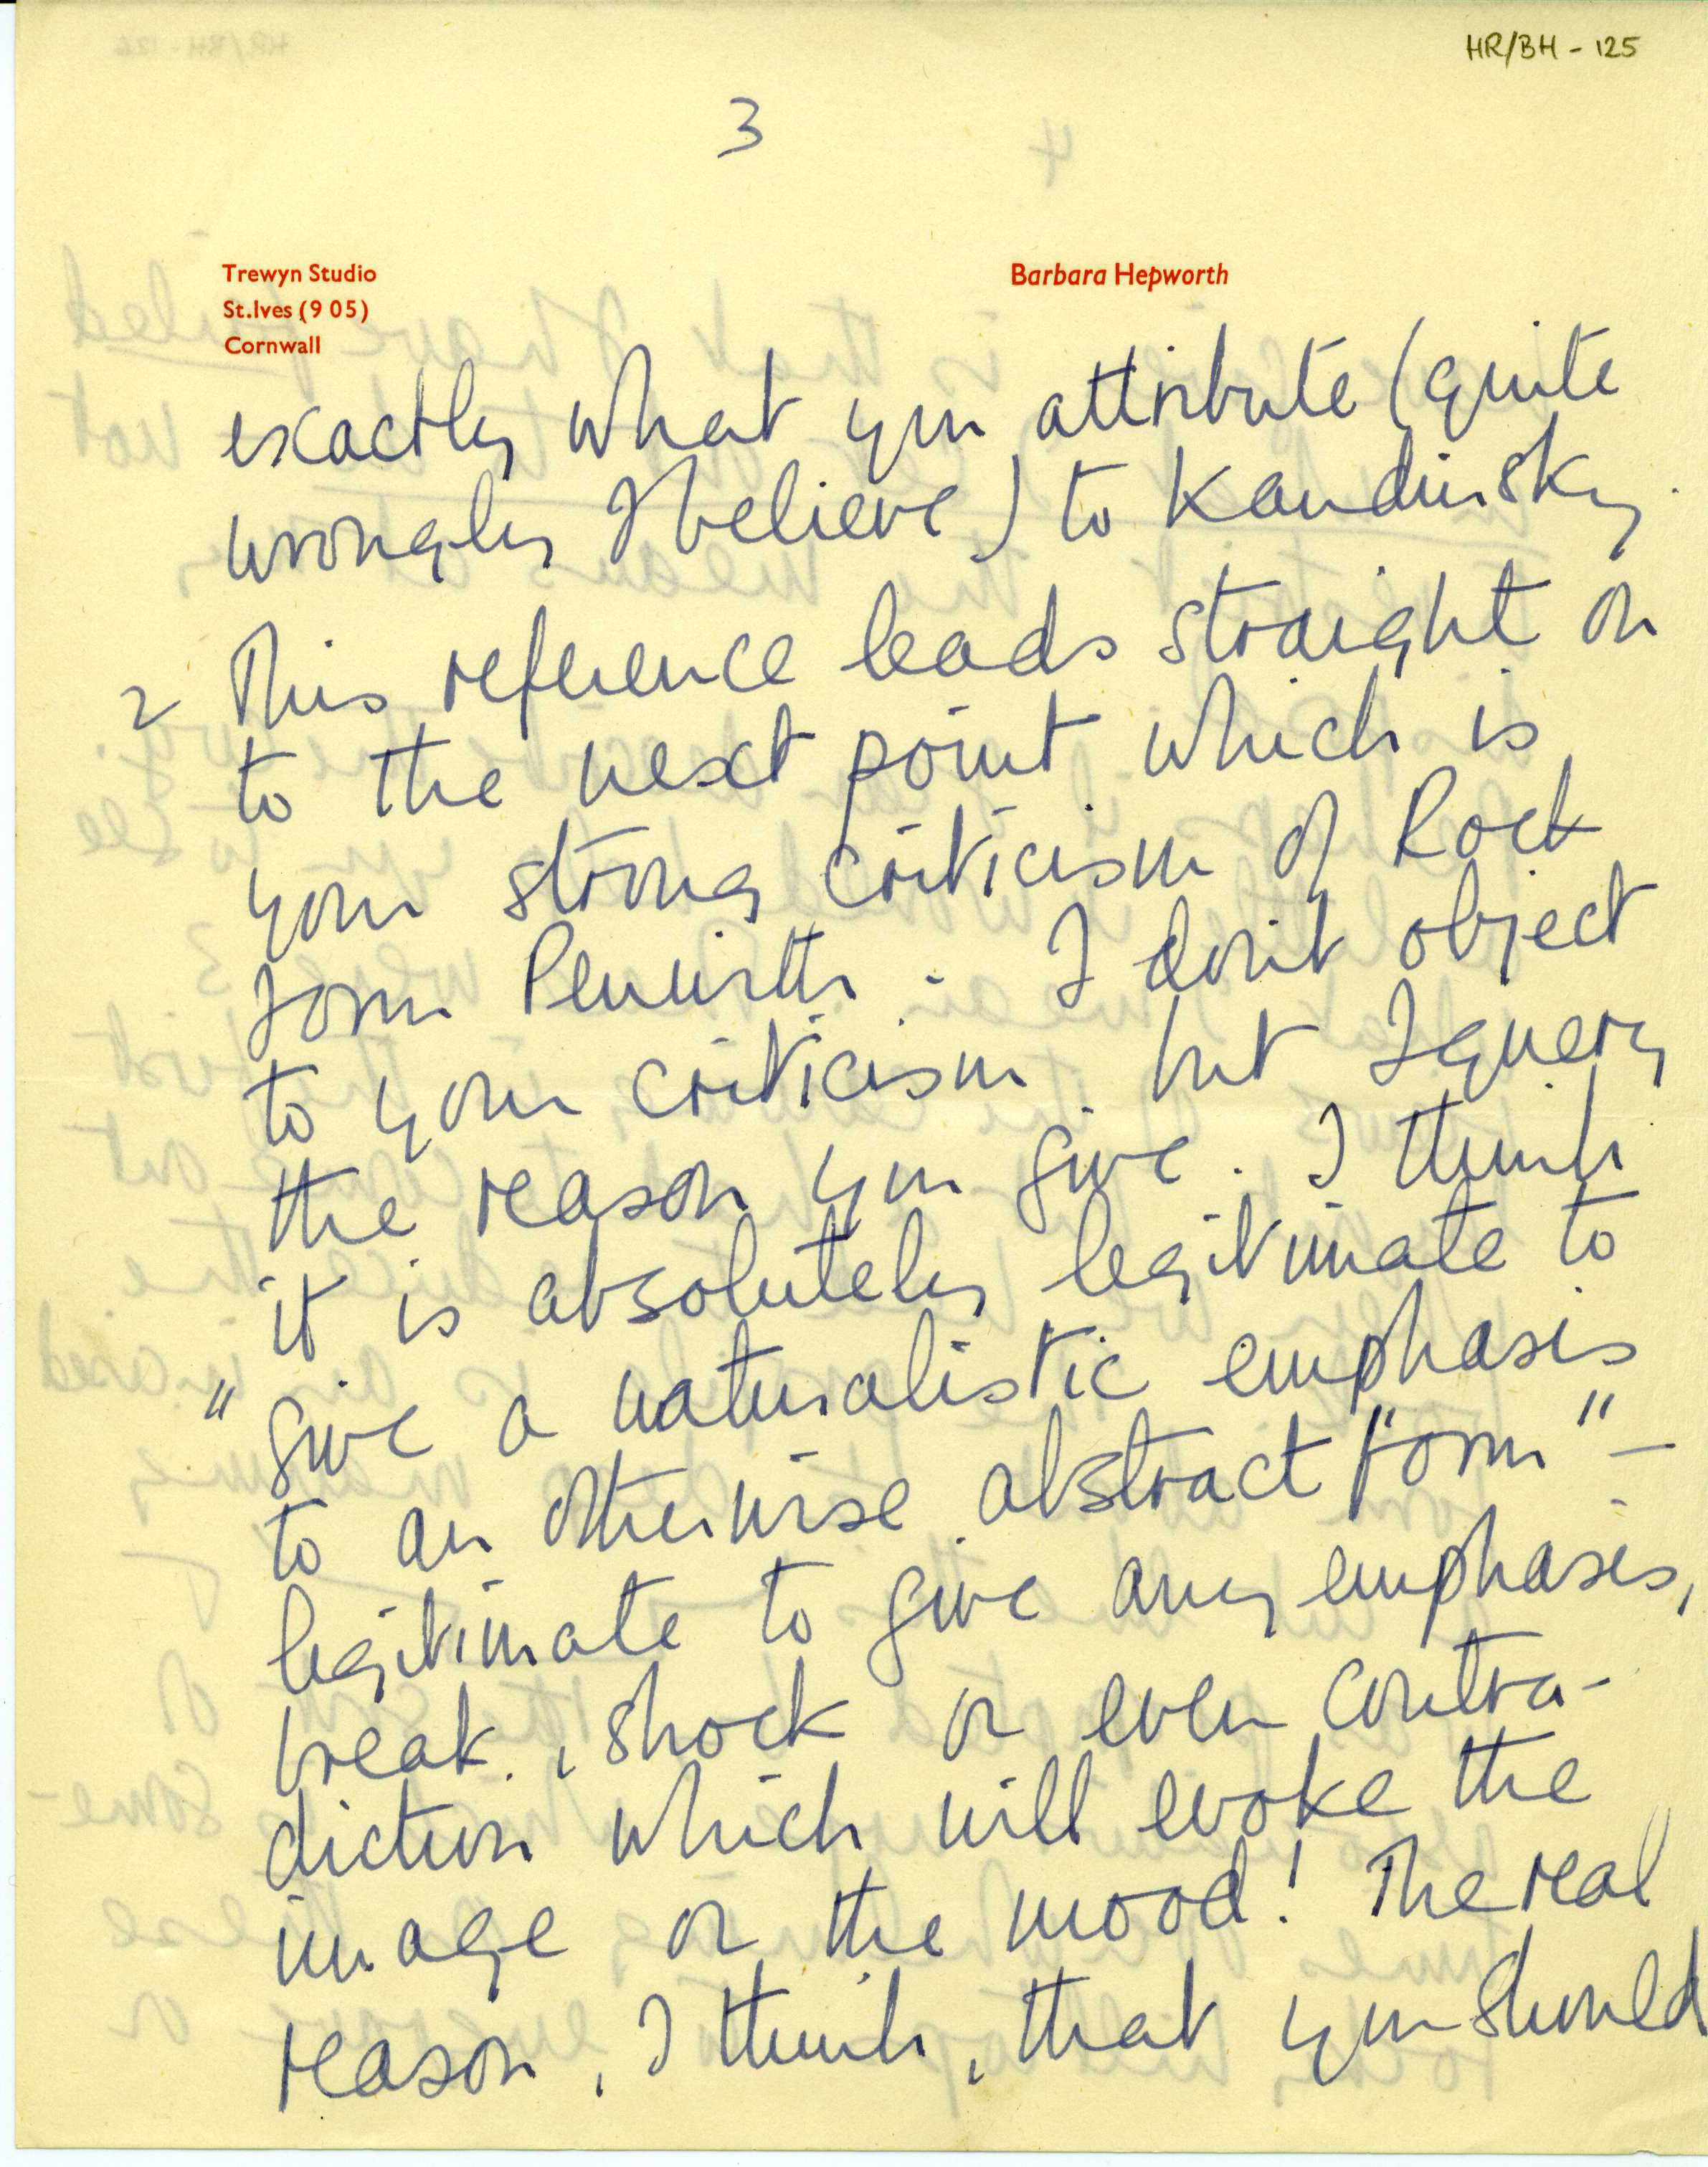 HR/BH - 125
3
Trewyn Studio
St.Ives (9 05)
Cornwall
Barbara Hepworth
exactly what you attribute (quite
wrongly I believe) to Kandinsky.
2 This reference leads straight on
to the next point which is
your strong criticism of Rock
Form Penwith. I don't object
to your criticism but I query
the reason you give. I think
it is absolutely legitimate to
"give a naturalistic emphasis
to an otherwise abstract "form" —
legitimate to give any emphasis,
break, shock or even contra-
diction which will evoke the
image or the mood! The real
reason, I think, that you should